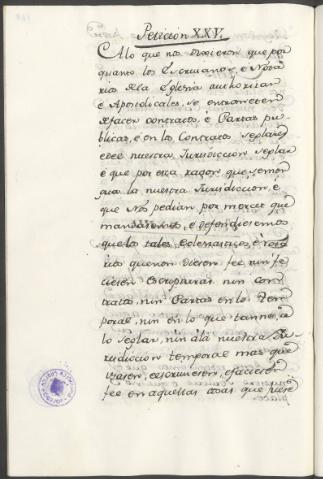 Peticion XXV.
A lo que nos dixieron que por
quanto los Escrivanos, e Nota
rios dela Iglesia authorizan
e Apostolicales, se entrometen
defacer contratos, e Cartas pu
blicas, e en los Contratos seglares
e de nuestra Jurisdiccion seglar
e que por esta razon que se men
gua la nuestra Jurisdiccion, e
que Nos pedian por merced que
mandasemos, e defendiesemos
que los tales, Eclesiasticos, e nota
rios que non diesen fee nin fi
ciesen Escripturas nin Con
tratos, nin Cartas en lo Tem
poral, nin en lo que tanne, a
lo seglar, nin á la nuestra Ju
risdiccion temporal mas que
usasen, e escriviesen, e faciesen
fee en aquellas cosas que pierte